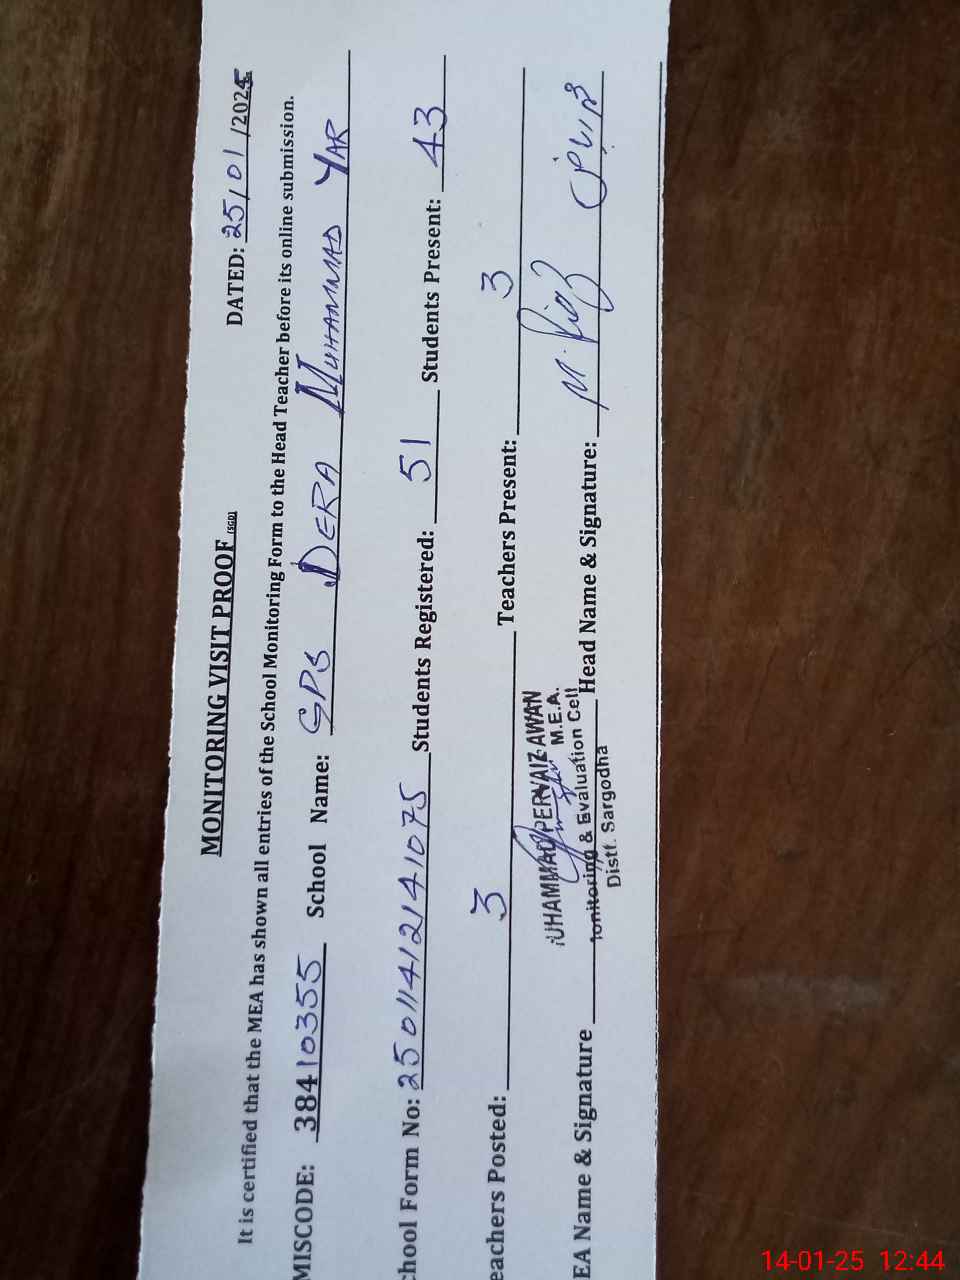 MONITORING VISIT PROOF (SGD)
DATED: 25/01/2025
It is certified that the MEA has shown all entries of the School Monitoring Form to the Head Teacher before its online submission.
MISCODE: 38410355 School Name: GPS DERA MUHAMMAD YAR
chool Form No: 25011412141075 Students Registered: 51 Students Present: 43
eachers Posted: 3 Teachers Present: 3
UHAMMAD PERVAIZ AWAN
M.E.A.
onitoring & Evaluation Cell
Distt. Sargodha
EA Name & Signature Head Name & Signature: M. Riaz
14-01-25 12:44